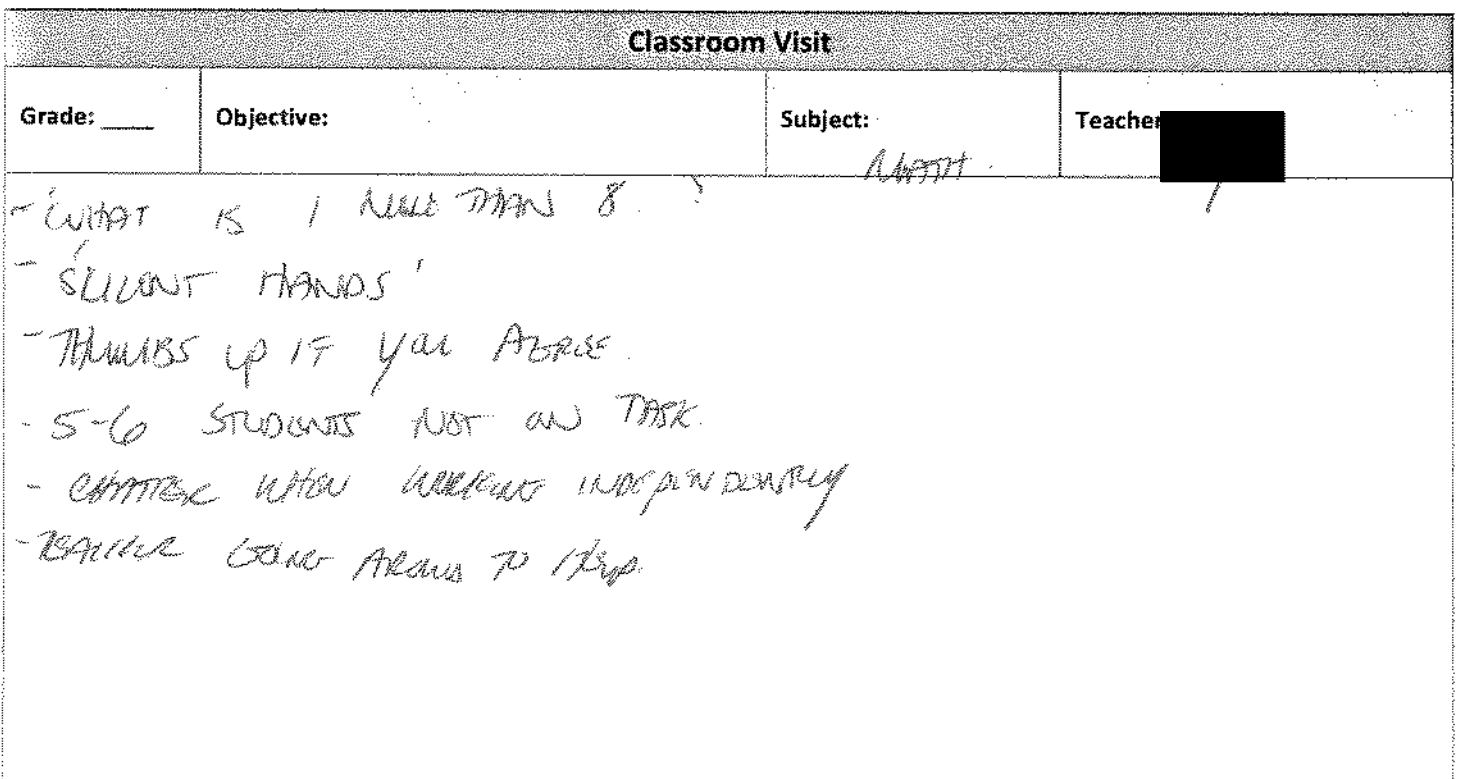 Classroom Visit
Grade: ____ Objective: Subject: Teacher
MATH
- 'WHAT IS 1 MORE THAN 8 ?
- 'SILENT HANDS'
- THUMBS UP IF YOU AGREE.
- 5-6 STUDENTS NOT ON TASK.
- CHATTER WHEN WORKING INDEPENDENTLY
- TEACHER GOING AROUND TO HELP.